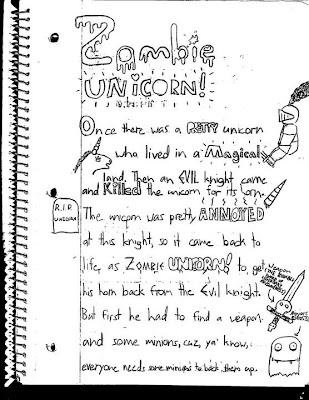 Zombie
UNICORN!
Once there was a PRETTY unicorn
who lived in a Magical
land. Then an EVIL knight came
and Killed the unicorn for its corn.
R.I.P.
UNICORN
The unicorn was pretty ANNOYED
at this knight, so it came back to
life, as ZOMBIE UNICORN! to get
his horn back from the Evil knight.
But first he had to find a weapon.
and some minions, cuz, ya' know,
everyone needs some minions to back them up.
Weapon